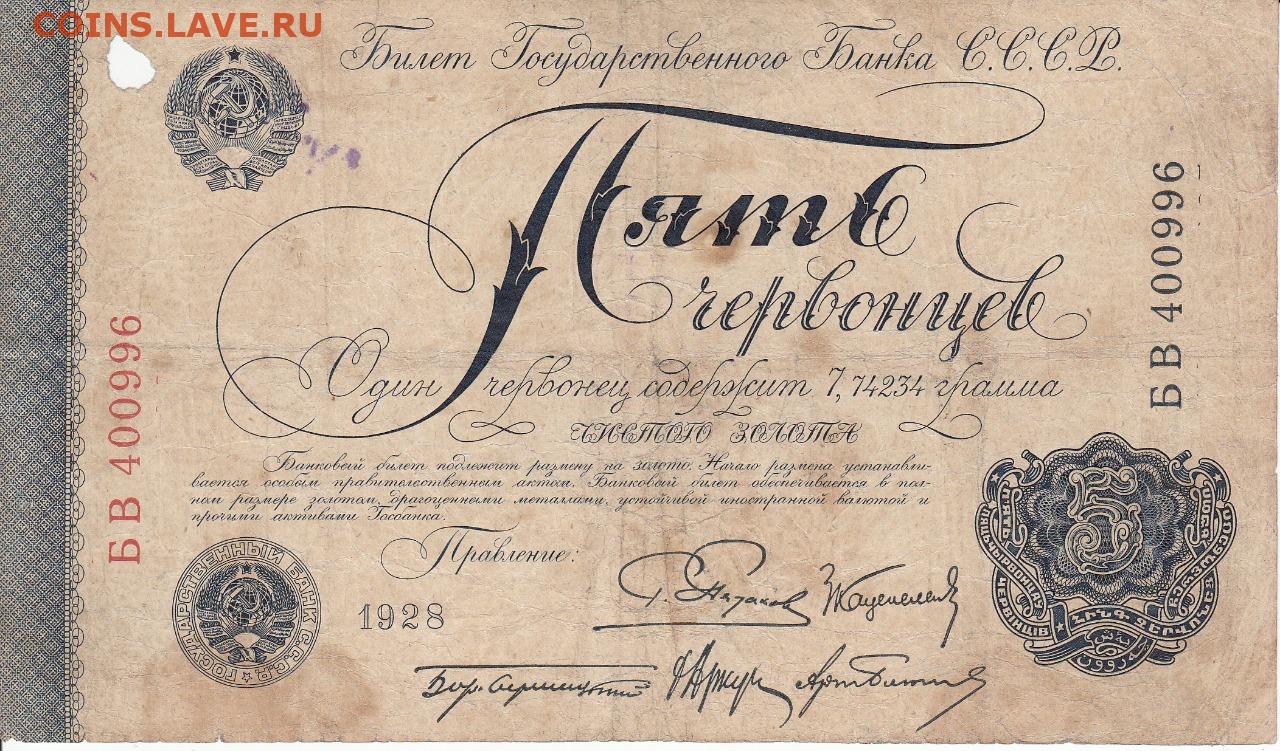 COINS.LAVE.RU
Билет Государственного Банка С.С.С.Р.
Пять
червонцев
Один червонец содержит 7,74234 грамма
чистого золота
Банковый билет подлежит размену на золото. Начало размена устанавли-
вается особым правительственным актом. Банковый билет обеспечивается в пол-
ном размере золотом, драгоценными металлами, устойчивой иностранной валютой и
прочими активами Госбанка.
Правление:
1928
БВ 400996
БВ 400996
ГОСУДАРСТВЕННЫЙ БАНК С.С.С.Р.
5
ՀԻՆԳ ՉԵՐՎՈՆԵՑ